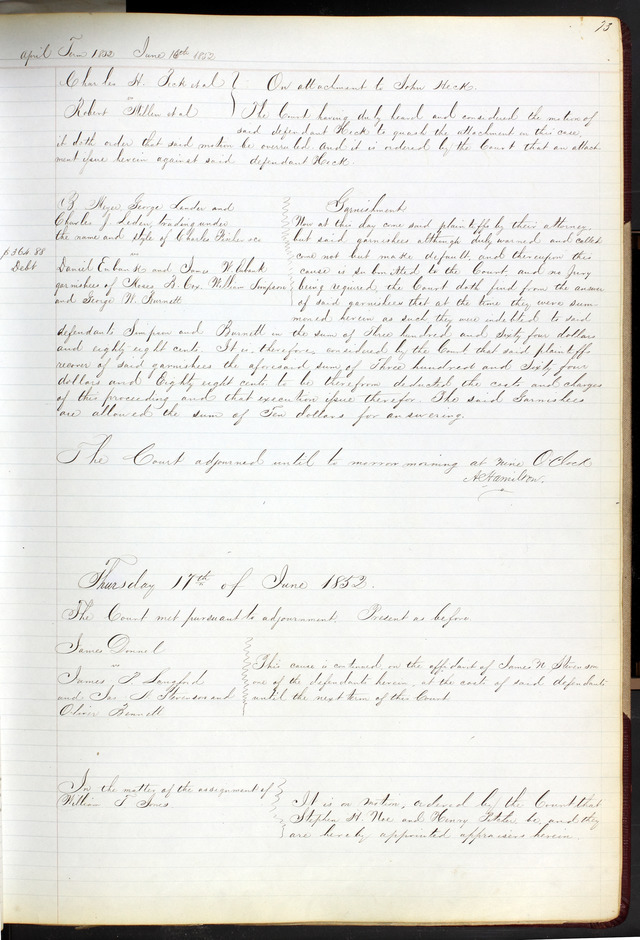 73
April Term 1852 June 16th 1852
Charles H. Peck et al
vs
Robert Mullen et al
On attachment to John Heck.
The Court having duly heard and considered the motion of
said defendant Heck to quash the attachment in this case,
it doth order that said motion be overruled. And it is ordered by the Court that an attach-
ment issue herein against said defendant Heck.
$364.88
Debt
B. Meyer, George Lender and
Charles J. trading under
the name and style of Charles & co
vs
Daniel Eubank and James W. Eubank
garnishees of Moses A. Cox William Simpson
and George W. Burnett
Garnishment
Now at this day come said plaintiffs by their attorney
but said garnishees although duly warned and called
come not but make default, and thereupon this
cause is submitted to the Court, and no jury
being required, the Court doth find from the answer
of said garnishees that at the time they were sum-
moned herein as such, they were indebted to said
defendants Simpson and Burnett in the sum of three hundred and sixty four dollars
and eighty eight cents. It is therefore, considered by the Court that said plaintiffs
recover of said garnishees the aforesaid sum of Three hundred and Sixty four
dollars and Eighty eight cents to be therefrom deducted the costs and charges
of this proceeding and that execution issue therefor. The said Garnishees
are allowed the sum of Ten dollars for answering.
The Court adjourned until to morrow morning at nine O'Clock
A. Hamilton.
Thursday 17th of June 1852.
The Court met pursuant to adjournment. Present as before.
James Donnel
vs
James P. Langford
and Jas. N. Stevenson and
Oliver Bennett
This cause is continued, on the affidavit of James N. Stevenson
one of the defendants herein, at the costs of said defendants
until the next term of this Court
In the matter of the assignment of
William T. Jones
It is on motion, ordered by the Court that
Stephen H. Noe and Henry be and they
are hereby appointed appraisers herein.